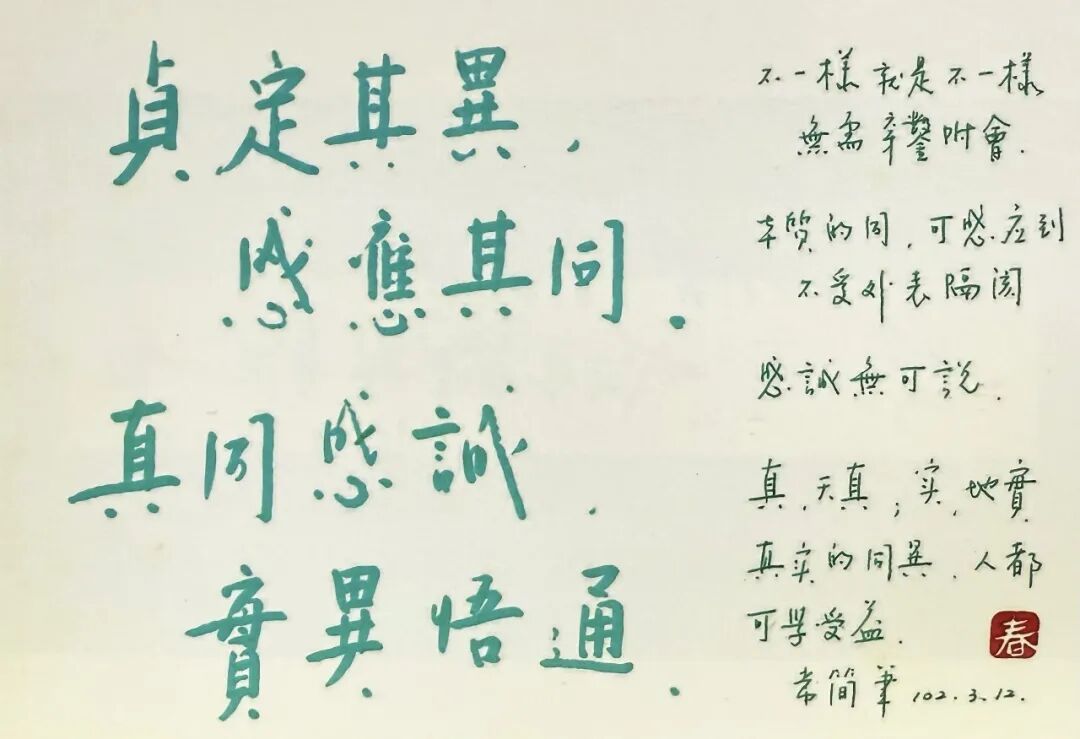 貞定其異，
感應其同．
真同感誠．
實異悟通．
不一樣就是不一樣
無需穿鑿附會．
本質的同，可感应到
不受外表隔阂
感誠無可說．
真，天真；实，地實
真实的同異，人都
可学受益．
常简筆 102.3.12.
春